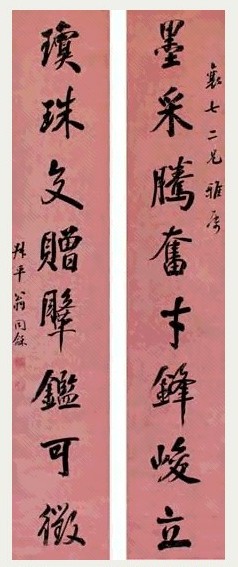 襄七二兄雅屬
墨采騰奮才鋒峻立
瓊珠交贈鑑可徵
叔平翁同龢